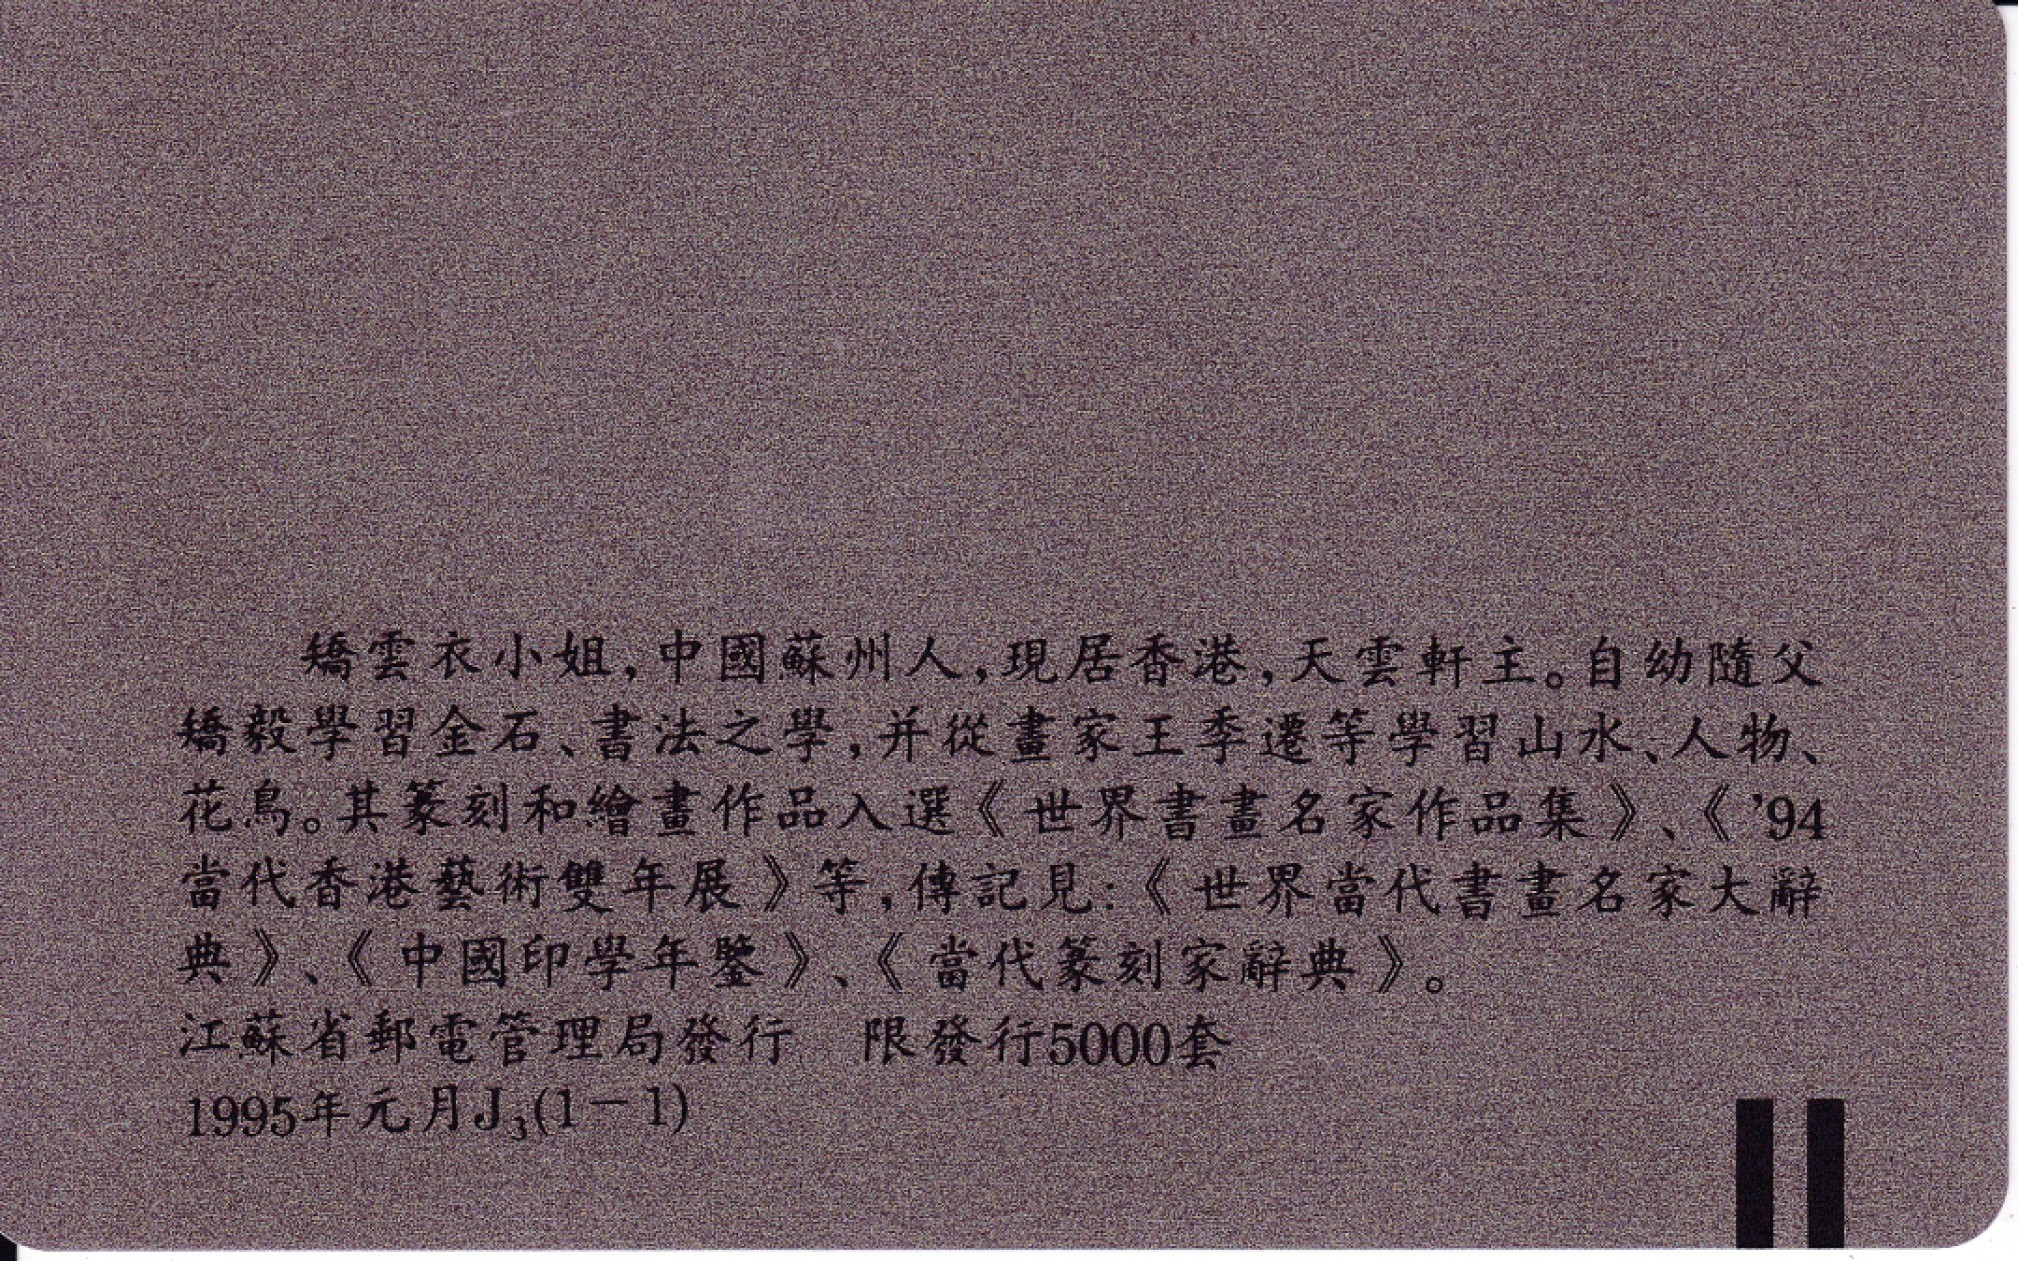 矯雲衣小姐,中國蘇州人,現居香港,天雲軒主。自幼隨父
矯毅學習金石、書法之學,并從畫家王季遷等學習山水、人物、
花鳥。其篆刻和繪畫作品入選《世界書畫名家作品集》、《'94
當代香港藝術雙年展》等,傳記見:《世界當代書畫名家大辭
典》、《中國印學年鑒》、《當代篆刻家辭典》。
江蘇省郵電管理局發行　限發行5000套
1995年元月J₃(1－1)